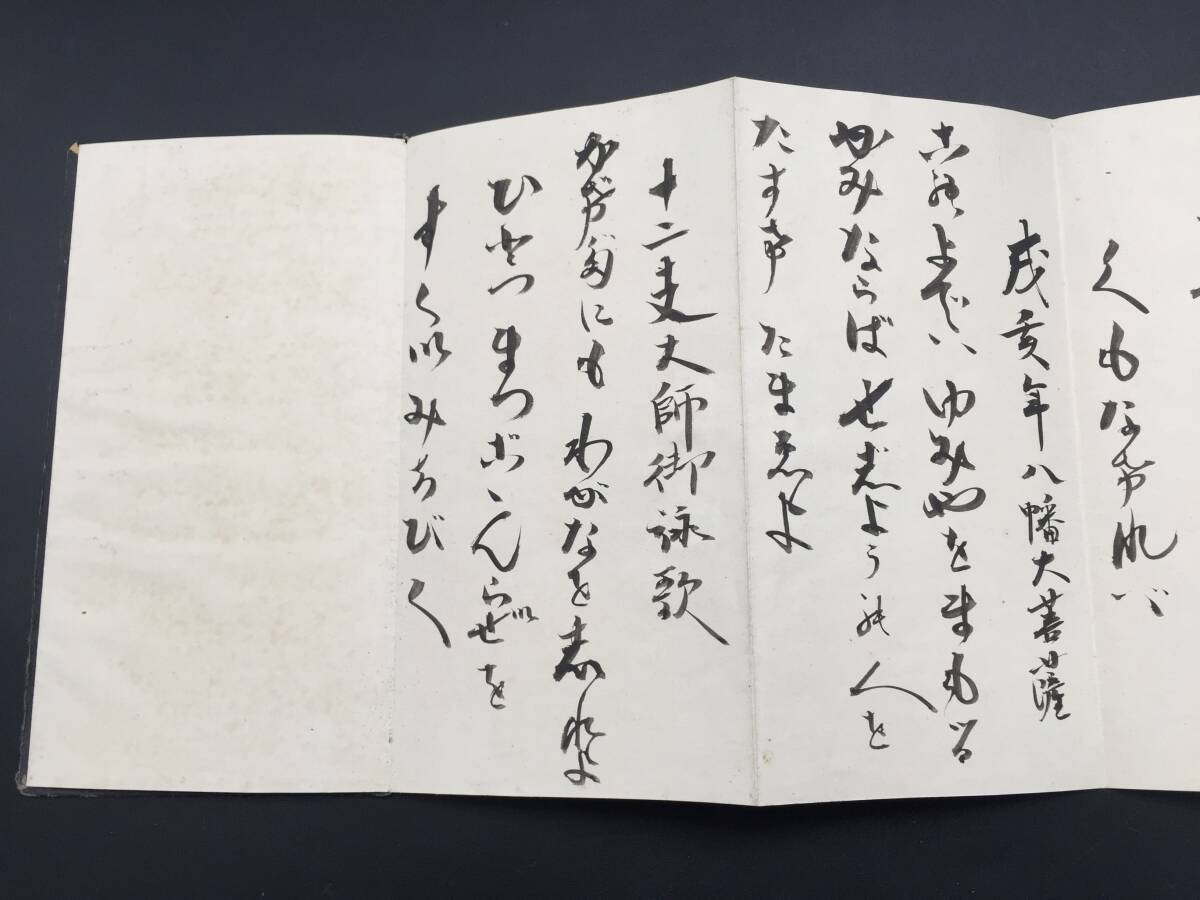 くもなければ
戌亥年八幡大菩薩
このよでハゆみやをまもる
かみならば せじようの人を
たすけ たまゑよ
十二支大師御詠歌
かげだにも わがなをしれよ
ひとつまつ こゝんらいせを
すくいみちびく